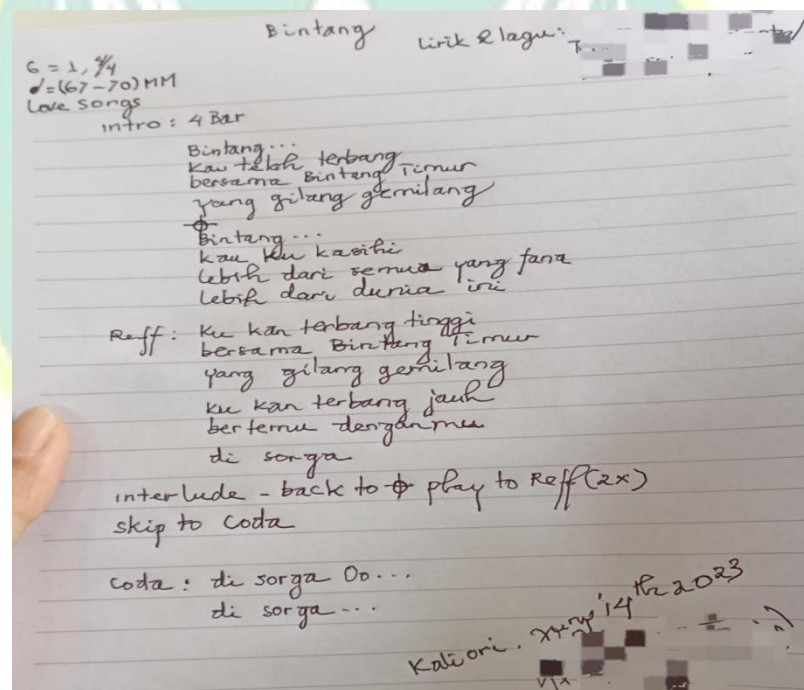 Bintang
Lirik & lagu:
G = 1, 4/4
d = (67-70) MM
Love songs
intro : 4 Bar
Bintang...
Kau telah terbang
bersama Bintang Timur
yang gilang gemilang
Bintang...
kau ku kasihi
lebih dari semua yang fana
lebih dari dunia ini
Reff : Ku kan terbang tinggi
bersama Bintang Timur
yang gilang gemilang
ku kan terbang jauh
bertemu denganmu
di sorga
interlude - back to 𝄌 play to Reff (2x)
skip to Coda
Coda : di sorga Oo...
di sorga...
Kaliori, 14th 2023